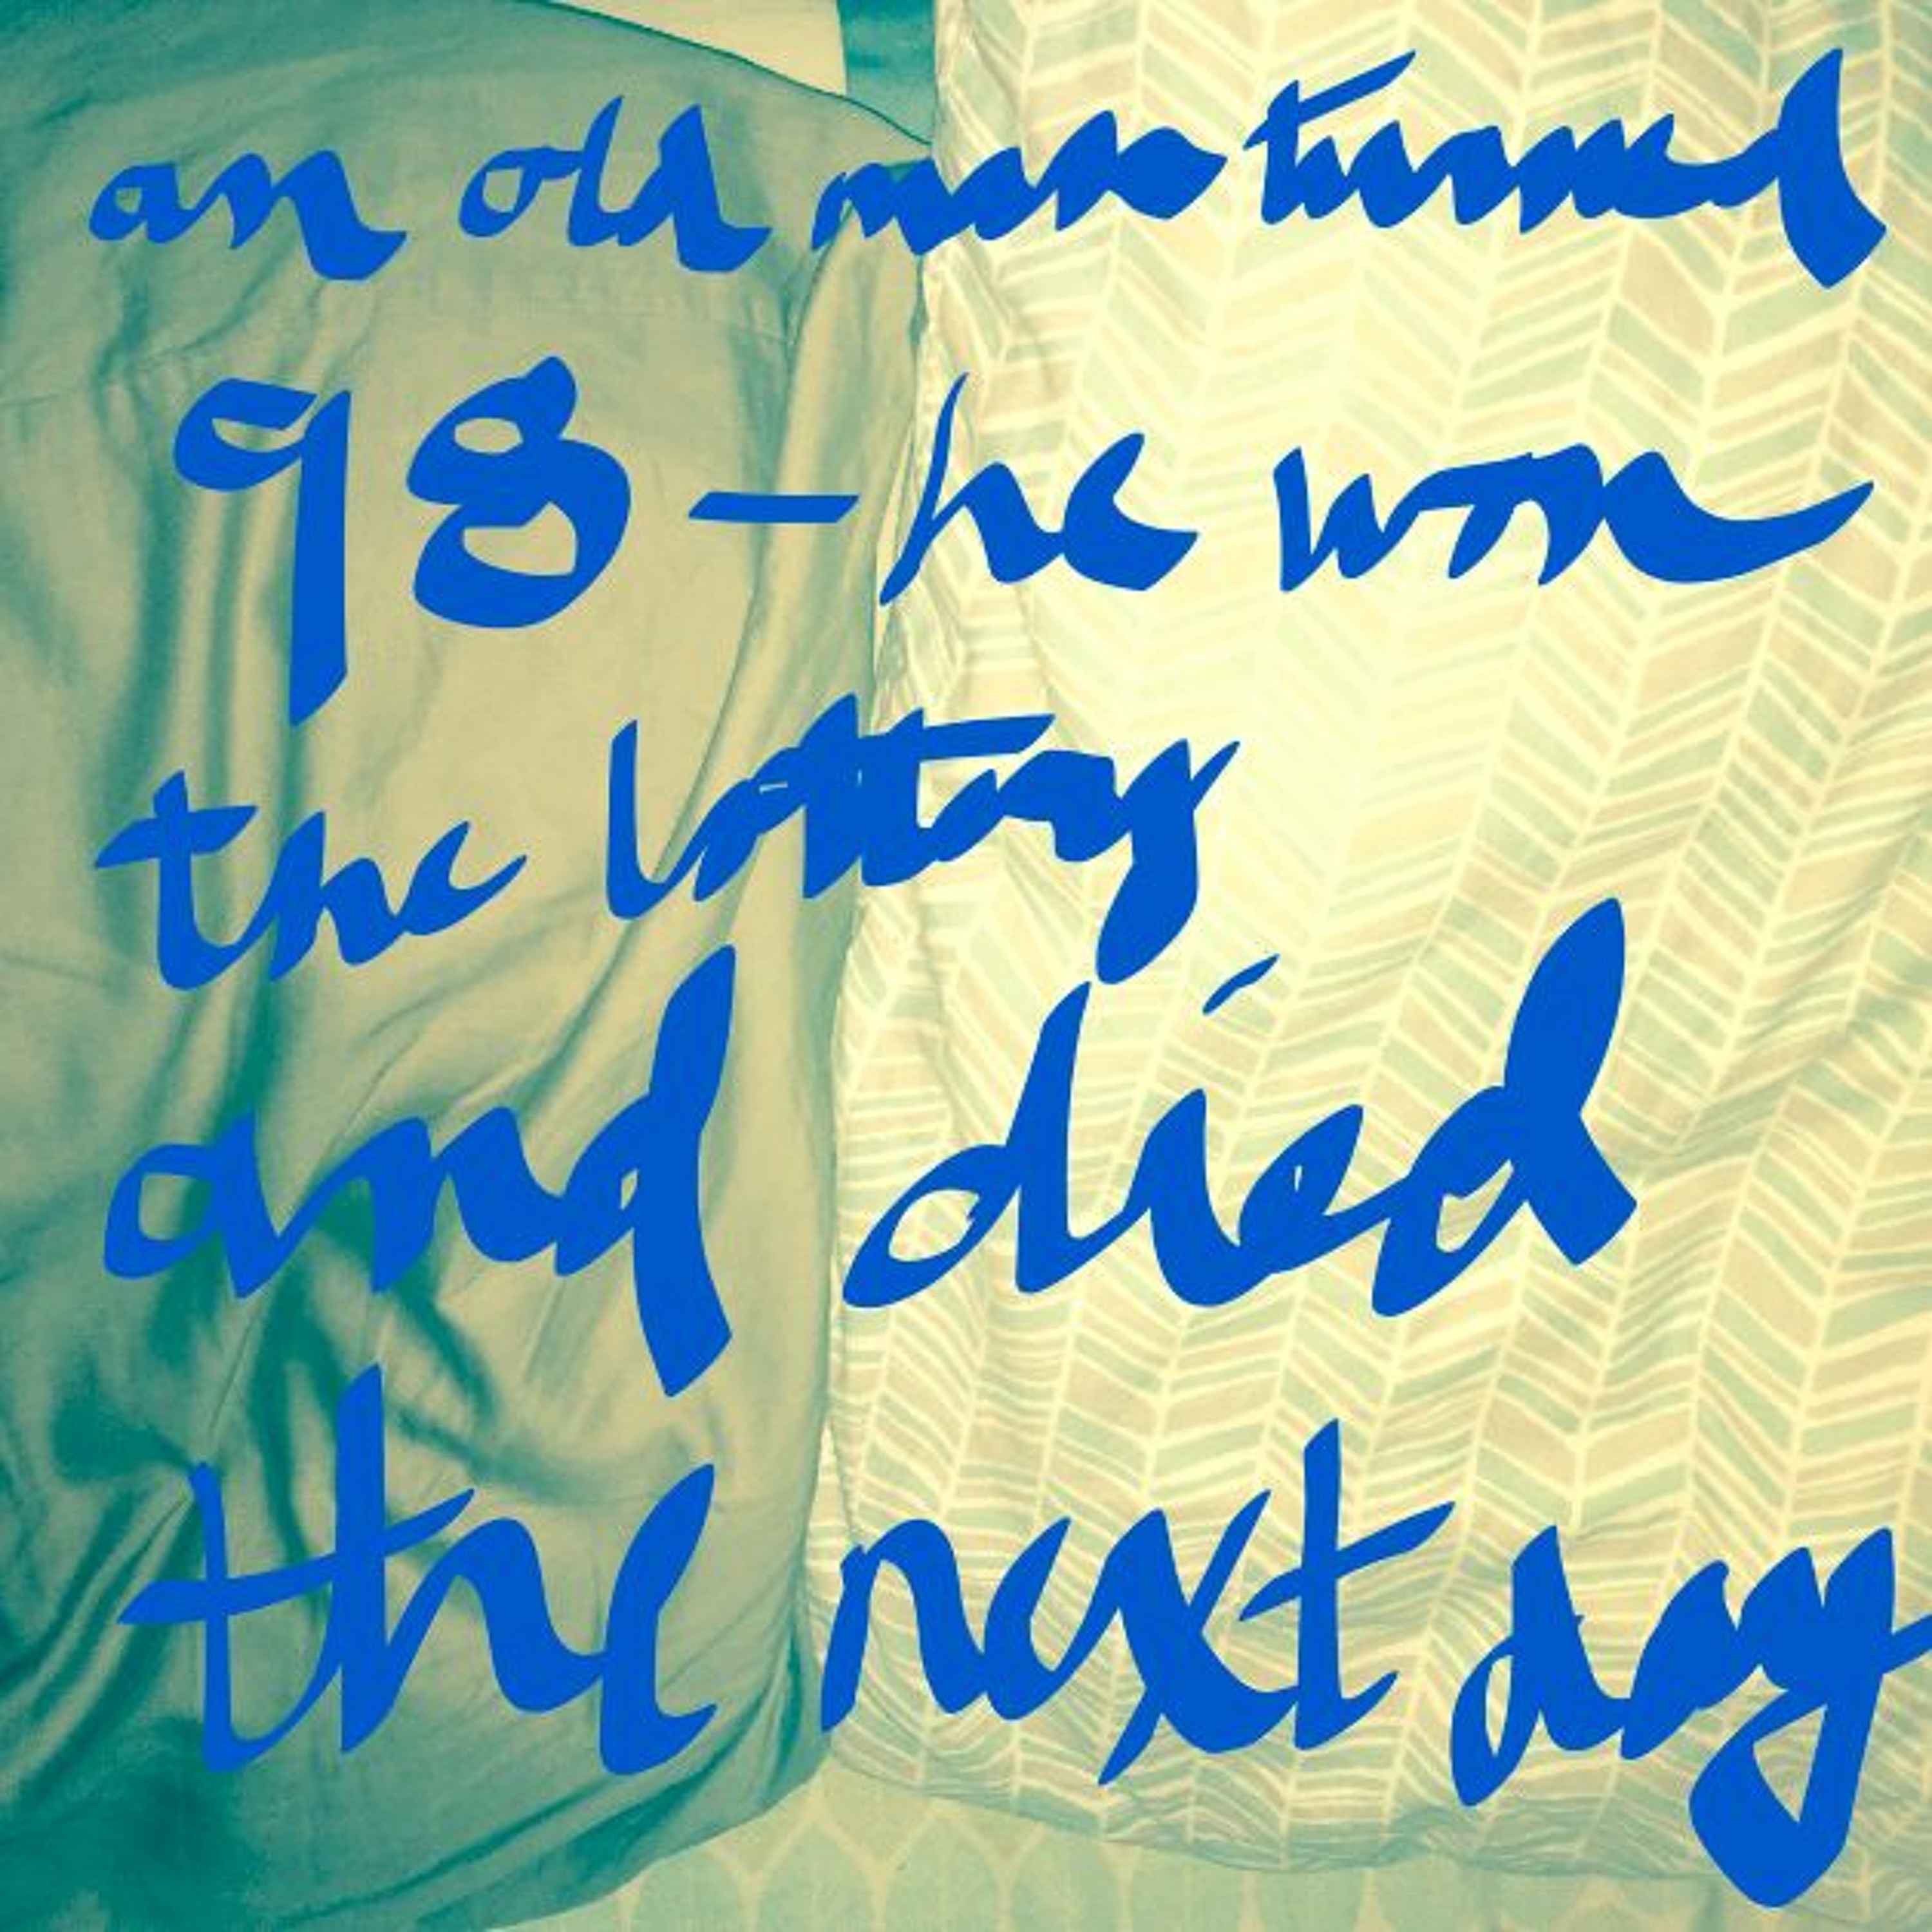 an old man turned
98 – he won
the lottery
and died
the next day